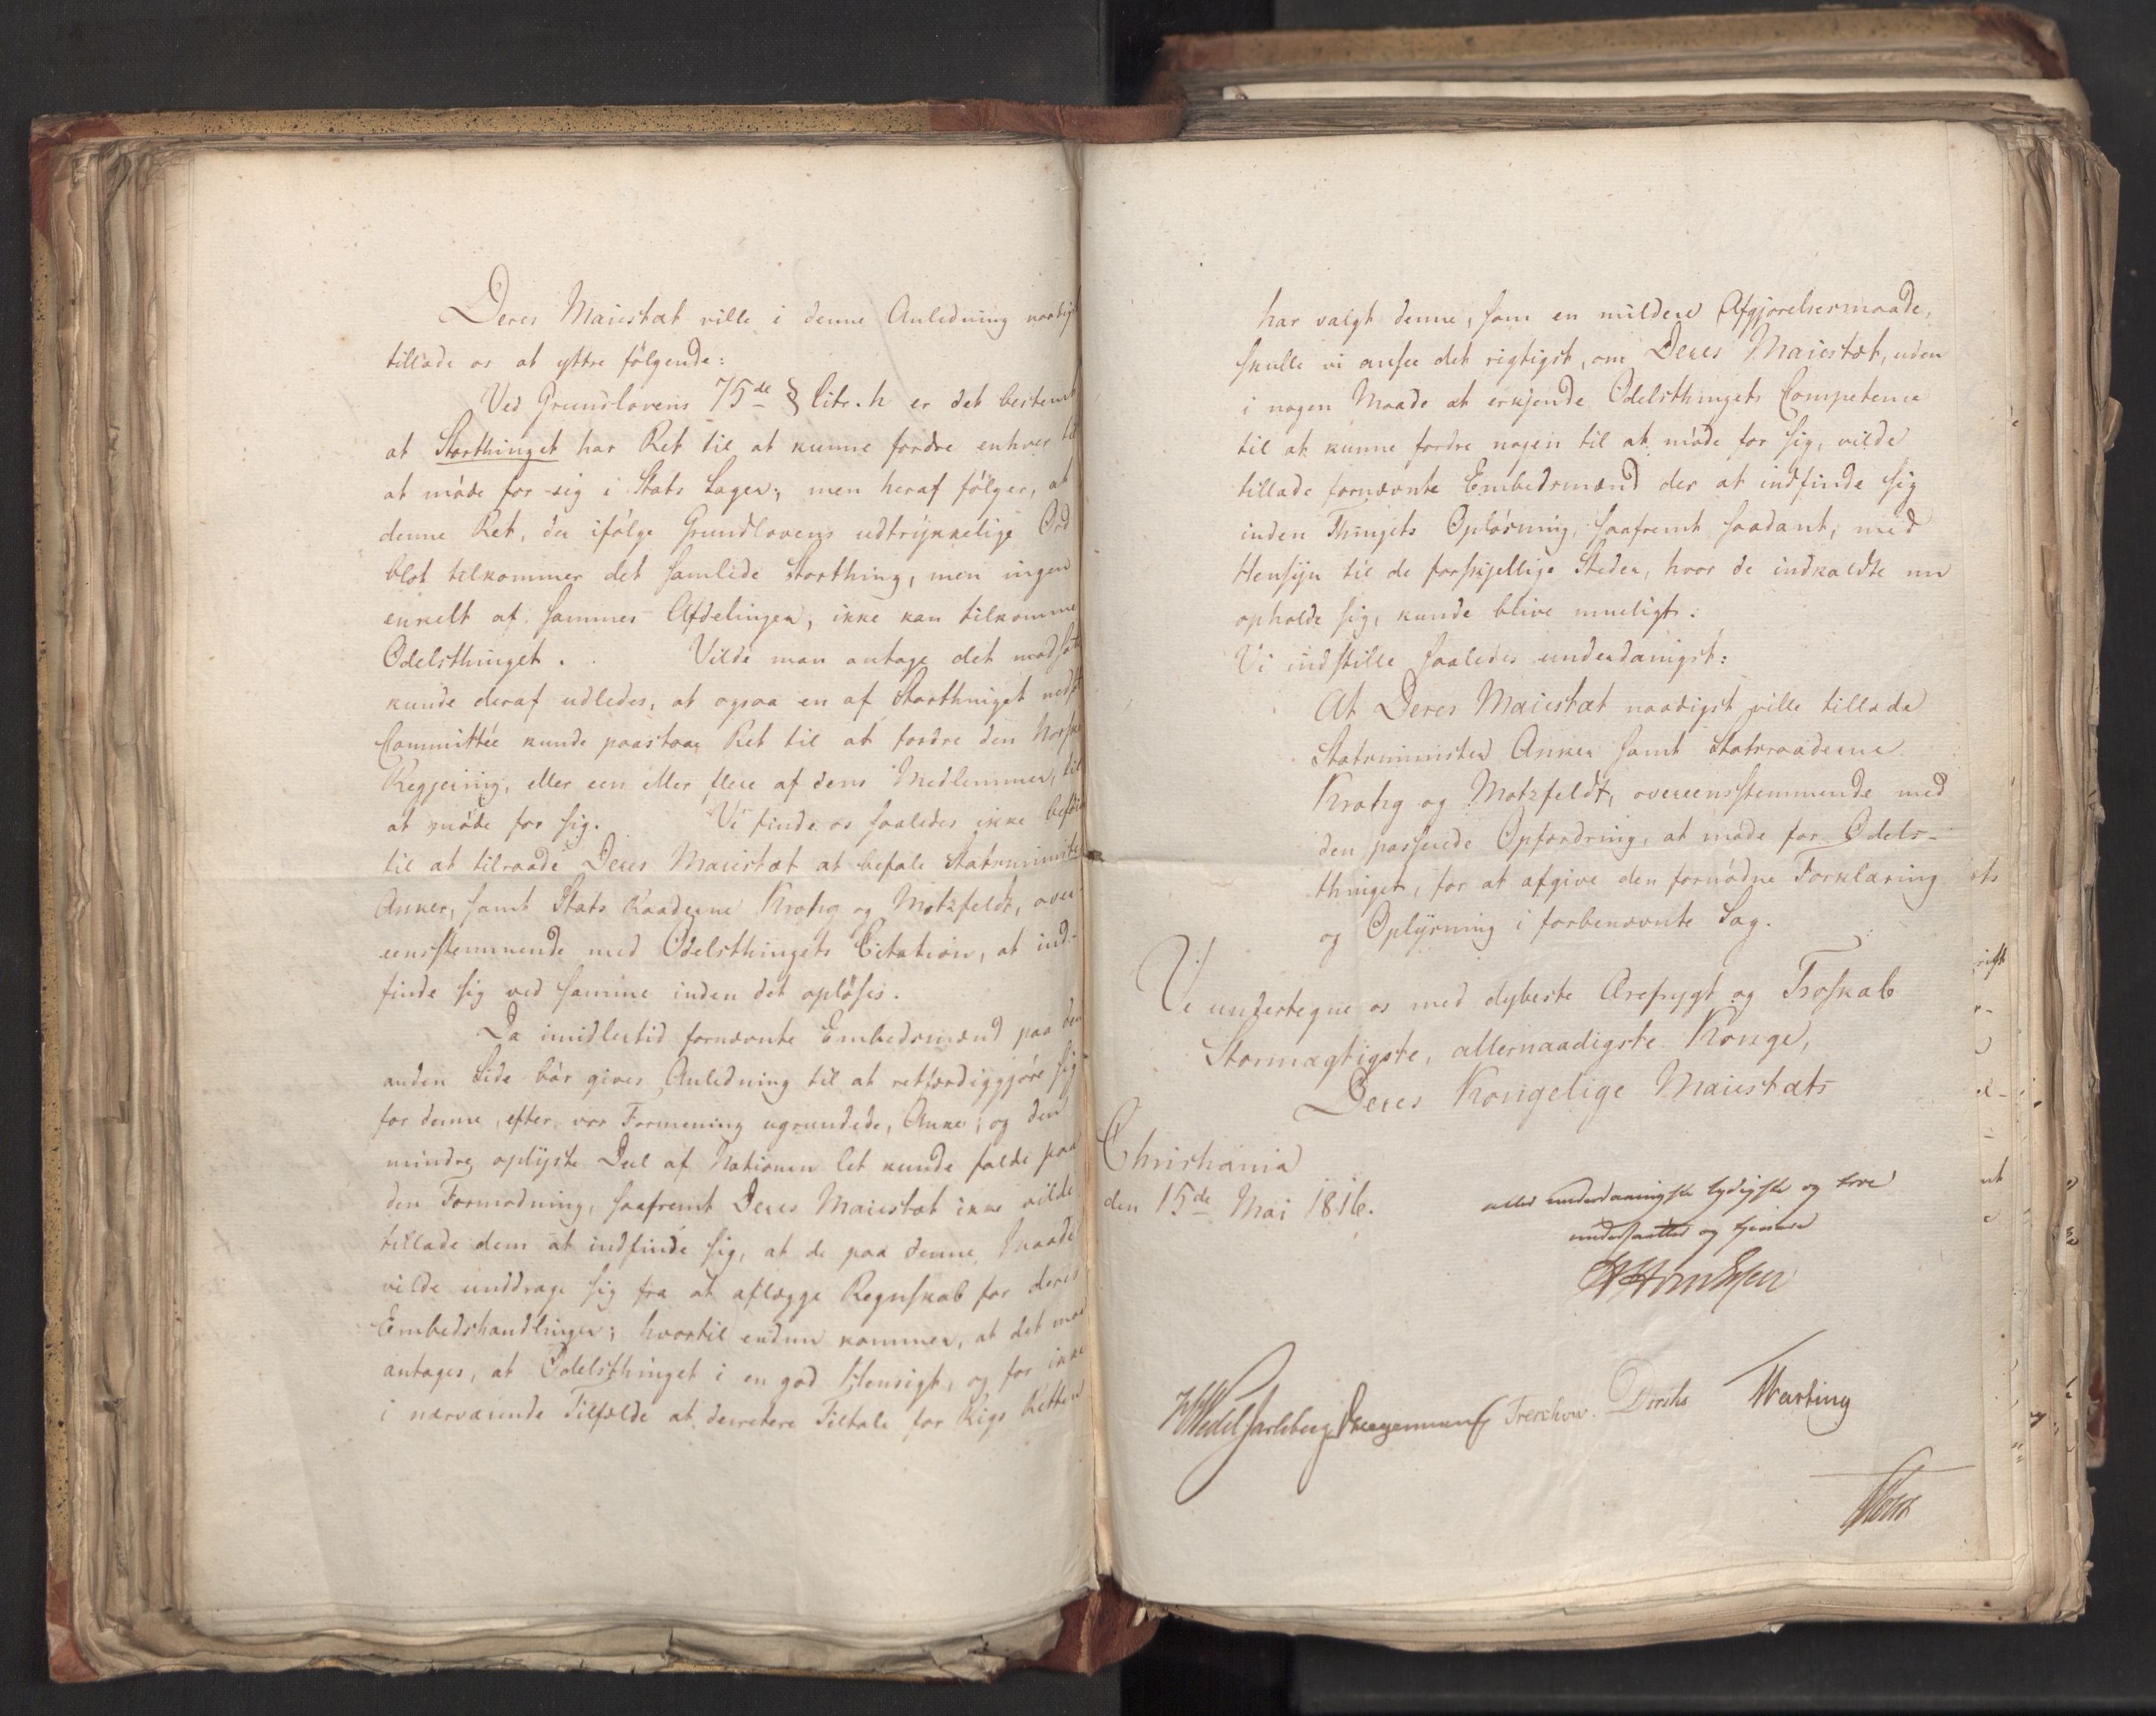 Deres Maiestæt ville i denne Anledning naadigst
tillade os at yttre følgende:
Ved Grundlovens 75de § litr. h er det bestemt
at Storthinget har Ret til at kunne fordre enhver til
at møde for sig i Stats Sager; men heraf følger, at
denne Ret, da ifølge Grundlovens udtrykkelige Ord
blot tilkommer det samlede Storthing, men ingen
enkelt af sammes Afdelinger, ikke kan tilkomme
Odelsthinget. Vilde man antage det modsatte
kunde deraf udledes, at ogsaa en af Storthinget nedsat
Committée kunde paastaae Ret til at fordre den Norske
Regjering, eller een eller flere af dens Medlemmer, til
at møde for sig. Vi finde os saaledes ikke beføiede
til at tilraade Deres Maiestæt at befale Statsminister
Anker, samt Stats Raaderne Krohg og Motzfeldt, over-
eensstemmende med Odelsthingets Citation, at ind-
finde sig ved samme inden det opløses.
Da imidlertid fornævnte Embedsmænd paa den
anden Side bør gives Anledning til at retfærdiggjøre sig
for denne, efter vor Formening ugrundede, Anke; og den
mindre oplyste Deel af Nationen let kunde falde paa
den Formodning, saafremt Deres Maiestæt ikke vilde
tillade dem at indfinde sig, at de paa denne Maade
vilde unddrage sig fra at aflægge Regnskab for deres
Embedshandlinger; hvortil endnu kommer, at det maa
antages, at Odelsthinget i en god Hensigt, og for ikke
i nærværende Tilfælde at decretere Tiltale for Rigs Retten
har valgt denne, som en mildere Afgjørelsesmaade,
skulle vi ansee det rigtigst, om Deres Maiestæt, uden
i nogen Maade at erkjende Odelsthingets Competence
til at kunne fordre nogen til at møde for sig, vilde
tillade fornævnte Embedsmænd der at indfinde sig
inden Thingets Opløsning, saafremt saadant, med
Hensyn til de forskjellige Steder, hvor de indkaldte nu
opholde sig, kunde blive mueligt.
Vi indstille saaledes underdanigst:
At Deres Maiestæt naadigst ville tillade
Statsminister Anker samt Statsraaderne
Krohg og Motzfeldt, overeensstemmende med
den passerede Opfordring, at møde for Odels-
thinget, for at afgive den fornødne Forklaring
og Oplysning i forbenævnte Sag.
Vi undertegne os med dybeste Ærefrygt og Troskab
Stormægtigste, allernaadigste Konge,
Deres Kongelige Maiestæts
Christiania
den 15de Mai 1816.
aller underdaanigste lydigste og troe
undersaatter og tjenere
HHvonEssen
HWedel Jarlsberg Diriks Hansteen
Treschow.